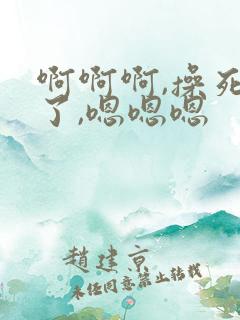 啊啊啊,操死
了,嗯嗯嗯
趙建京
未经同意禁止转载